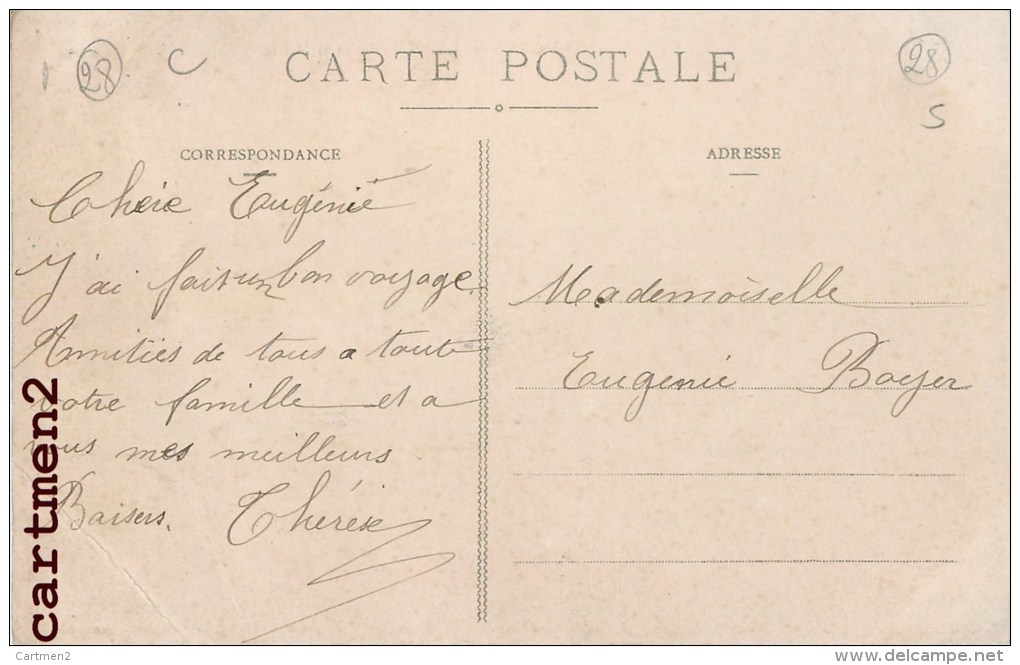 28
C
CARTE POSTALE
28
S
CORRESPONDANCE
Chérie Eugénie
J'ai fait un bon voyage.
Amitiés de tous a toute
votre famille et a
vous mes meilleurs
Baisers. Thérèse
ADRESSE
Mademoiselle
Eugénie Boyer
cartmen2
Cartmen2
www.delcampe.net